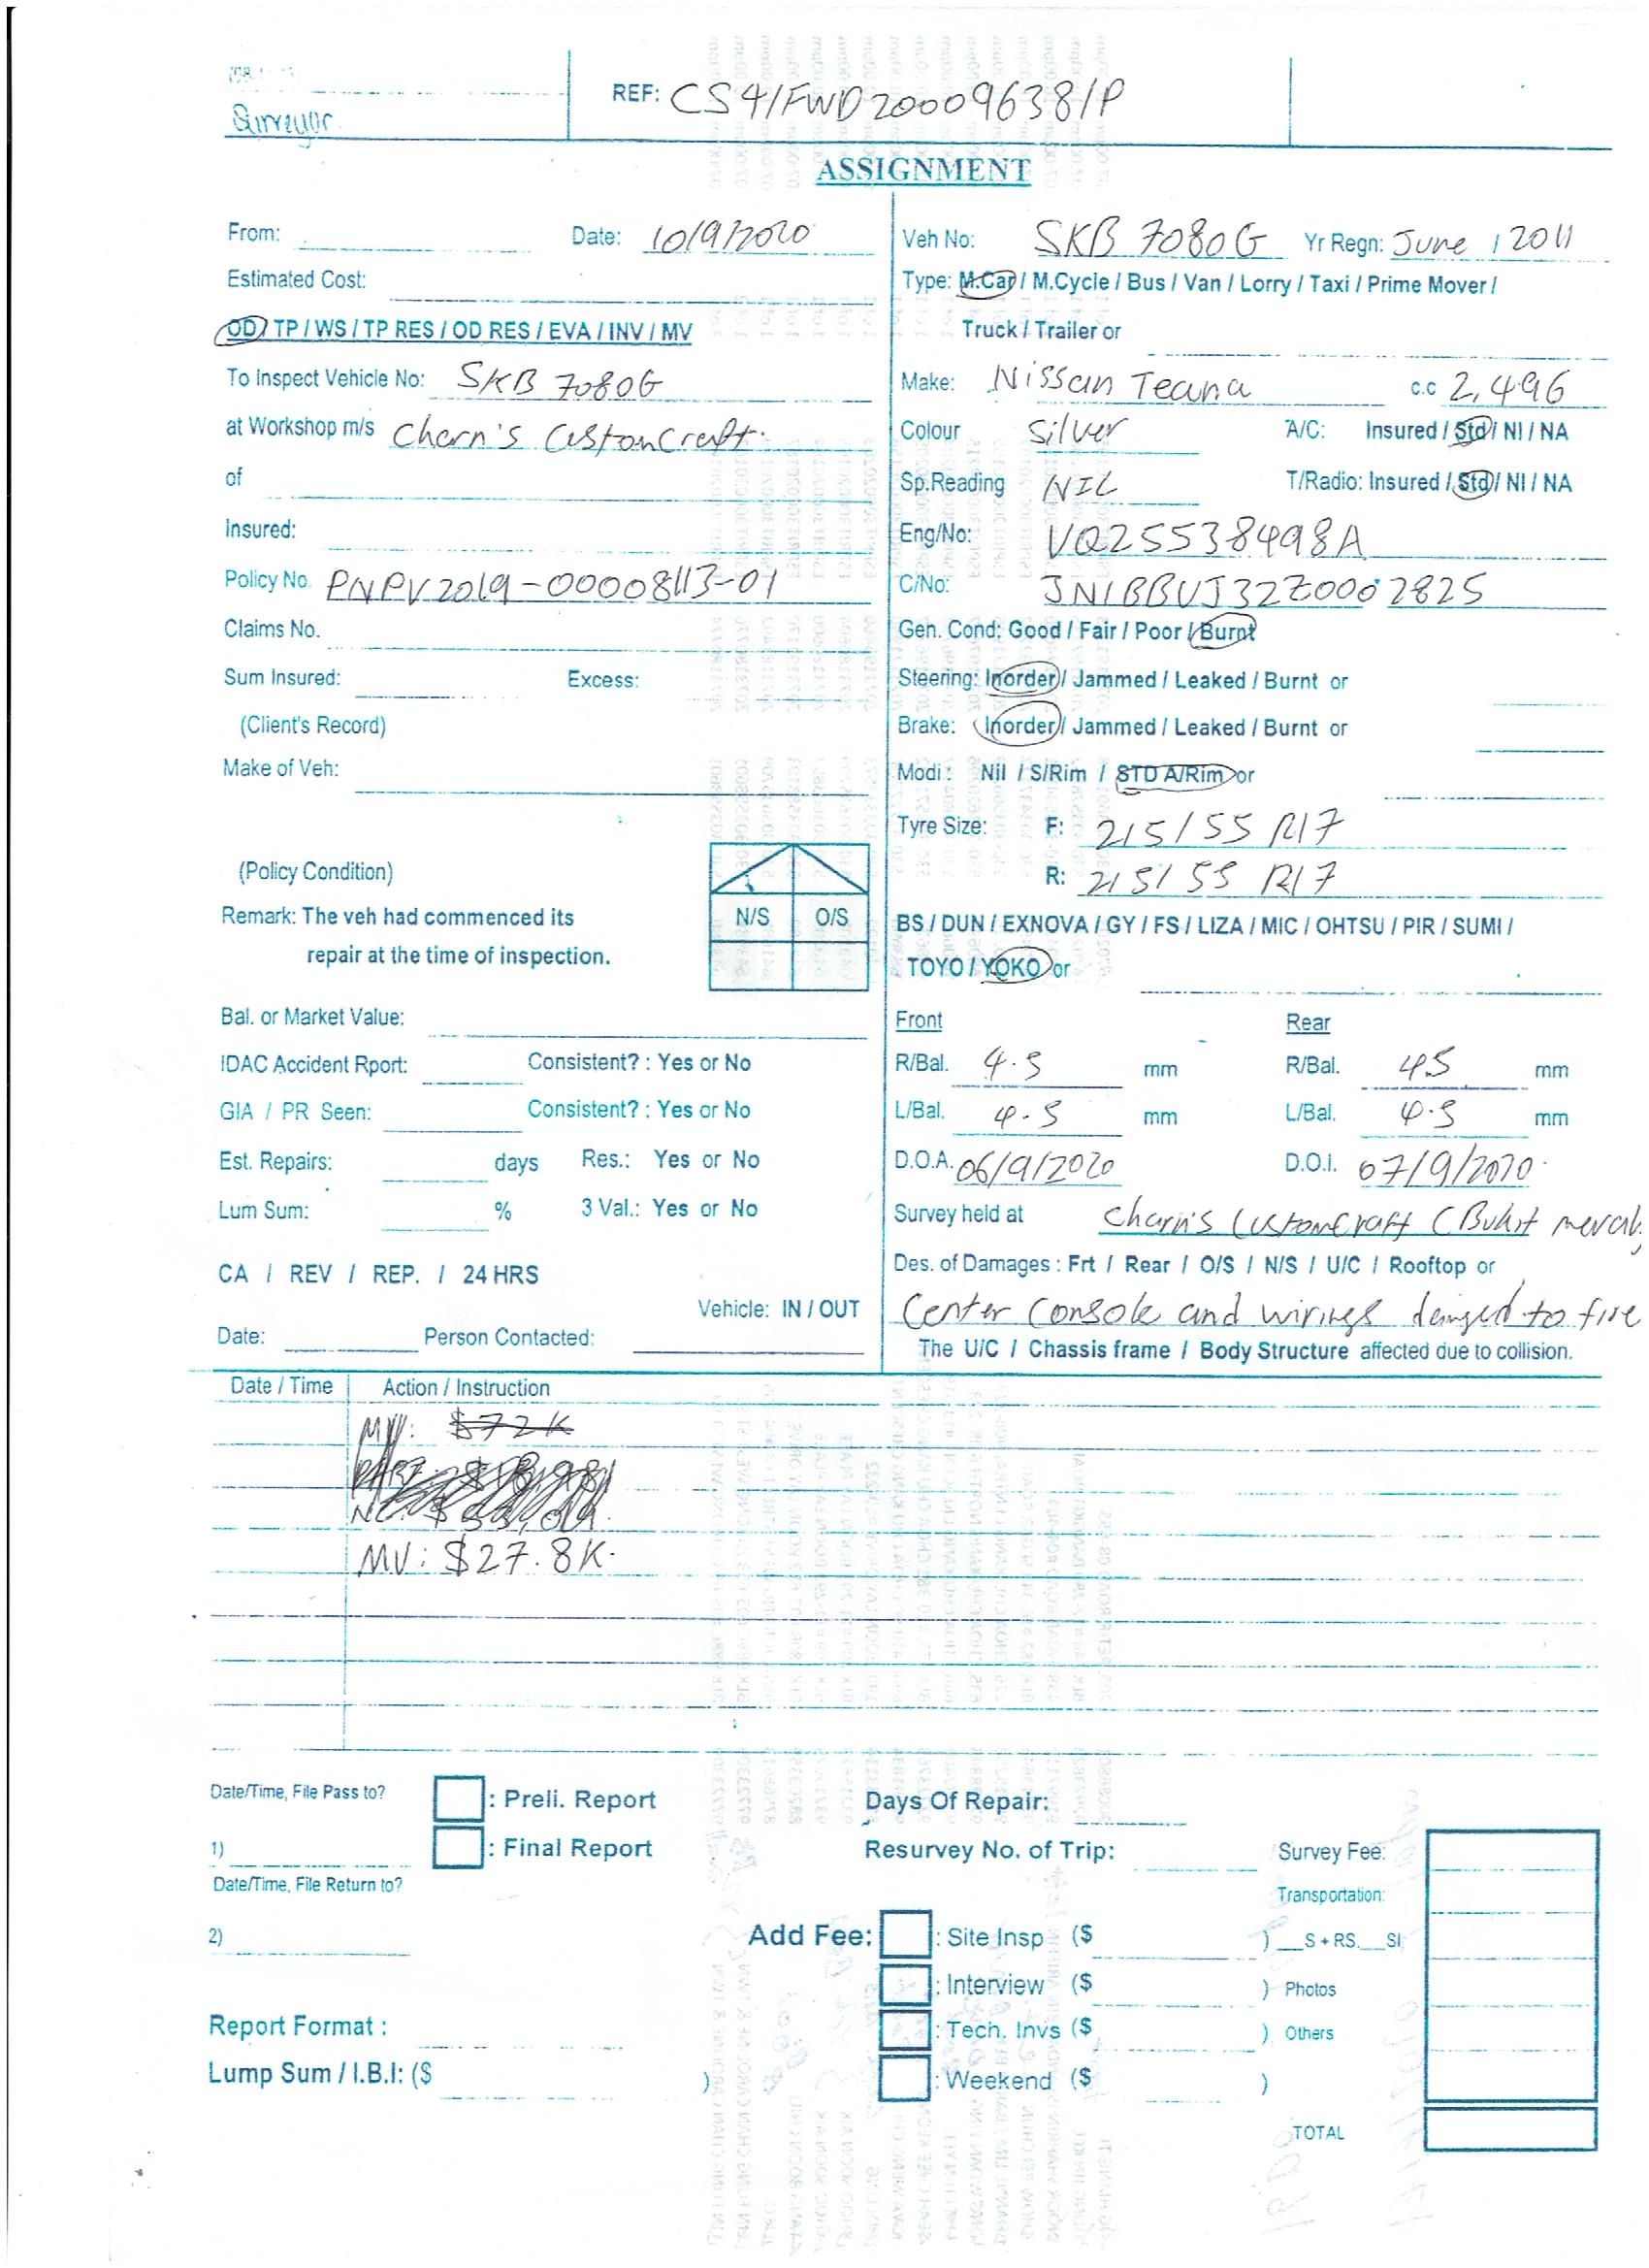 Surveyor
REF: CS4/FWD20009638/P
ASSIGNMENT
From: Date: 10/9/2020
Estimated Cost:
OD / TP / WS / TP RES / OD RES / EVA / INV / MV
To Inspect Vehicle No: SKB 7080G
at Workshop m/s Charn's CustomCraft.
of
Insured:
Policy No. PNPV2019-00008113-01
Claims No.
Sum Insured: Excess:
(Client's Record)
Make of Veh:
(Policy Condition)
Remark: The veh had commenced its
repair at the time of inspection.
N/S O/S
Bal. or Market Value:
IDAC Accident Rport: Consistent? : Yes or No
GIA / PR Seen: Consistent? : Yes or No
Est. Repairs: days Res.: Yes or No
Lum Sum: % 3 Val.: Yes or No
CA / REV / REP. / 24 HRS
Vehicle: IN / OUT
Date: Person Contacted:
Veh No: SKB 7080G Yr Regn: June / 2011
Type: M.Car / M.Cycle / Bus / Van / Lorry / Taxi / Prime Mover /
Truck / Trailer or
Make: Nissan Teana c.c 2,496
Colour Silver A/C: Insured / Std / NI / NA
Sp.Reading NIL T/Radio: Insured / Std / NI / NA
Eng/No: VQ25538498A
C/No: JN1BBUJ32Z0002825
Gen. Cond: Good / Fair / Poor / Burnt
Steering: Inorder / Jammed / Leaked / Burnt or
Brake: Inorder / Jammed / Leaked / Burnt or
Modi: Nil / S/Rim / STD A/Rim or
Tyre Size: F: 215/55 R17
R: 215/55 R17
BS / DUN / EXNOVA / GY / FS / LIZA / MIC / OHTSU / PIR / SUMI /
TOYO / YOKO or
Front Rear
R/Bal. 4.5 mm R/Bal. 45 mm
L/Bal. 4.5 mm L/Bal. 4.5 mm
D.O.A. 06/9/2020 D.O.I. 07/9/2020.
Survey held at Charn's CustomCraft (Bukit merah
Des. of Damages : Frt / Rear / O/S / N/S / U/C / Rooftop or
Center Console and wirings damged to fire
The U/C / Chassis frame / Body Structure affected due to collision.
Date / Time Action / Instruction
MV: $72K
MV: $27.8K.
Date/Time, File Pass to? : Preli. Report Days Of Repair:
1) : Final Report Resurvey No. of Trip: Survey Fee:
Date/Time, File Return to? Transportation:
2) Add Fee: : Site Insp ($ ) __S + RS.__SI
: Interview ($ ) Photos
Report Format : : Tech. Invs ($ ) Others
Lump Sum / I.B.I: ($ ) : Weekend ($ )
TOTAL